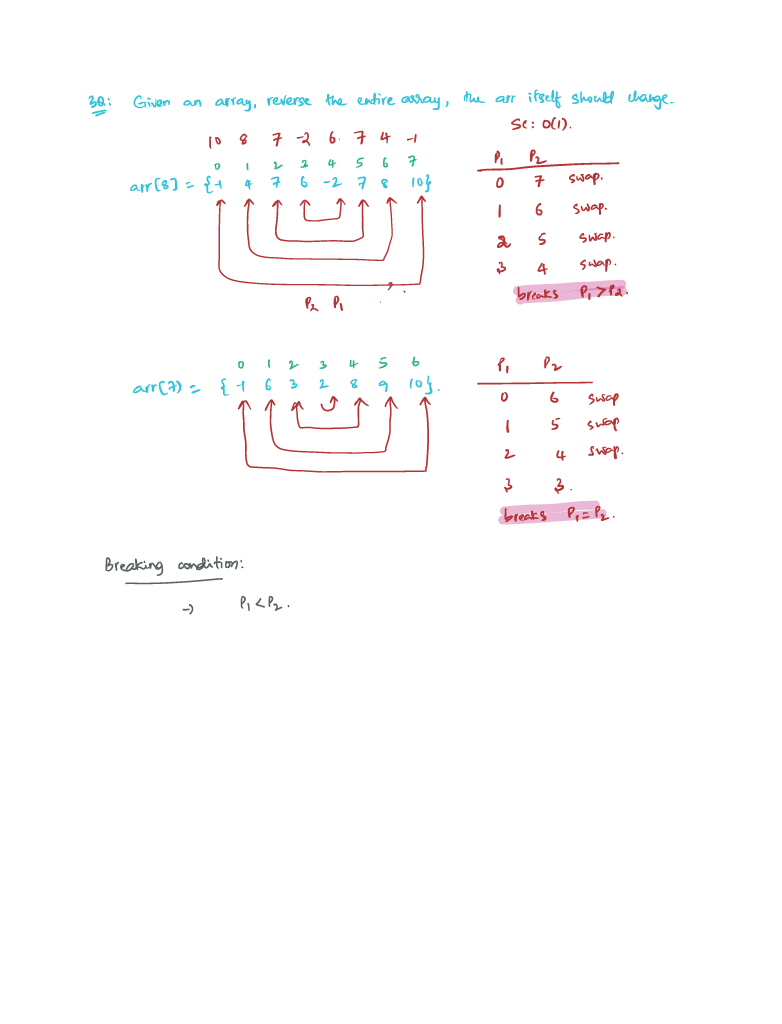 3Q: Given an array, reverse the entire array, the arr itself should change.
SC: O(1).
10 8 7 -2 6 7 4 -1
0 1 2 3 4 5 6 7
arr[8] = {-1 4 7 6 -2 7 8 10}
P2 P1
P1 P2
0 7 swap.
1 6 swap.
2 5 swap.
3 4 swap.
breaks P1 > P2.
0 1 2 3 4 5 6
arr(7) = {-1 6 3 2 8 9 10}.
P1 P2
0 6 swap
1 5 swap
2 4 swap.
3 3.
breaks P1 = P2.
Breaking condition:
→ P1 < P2.